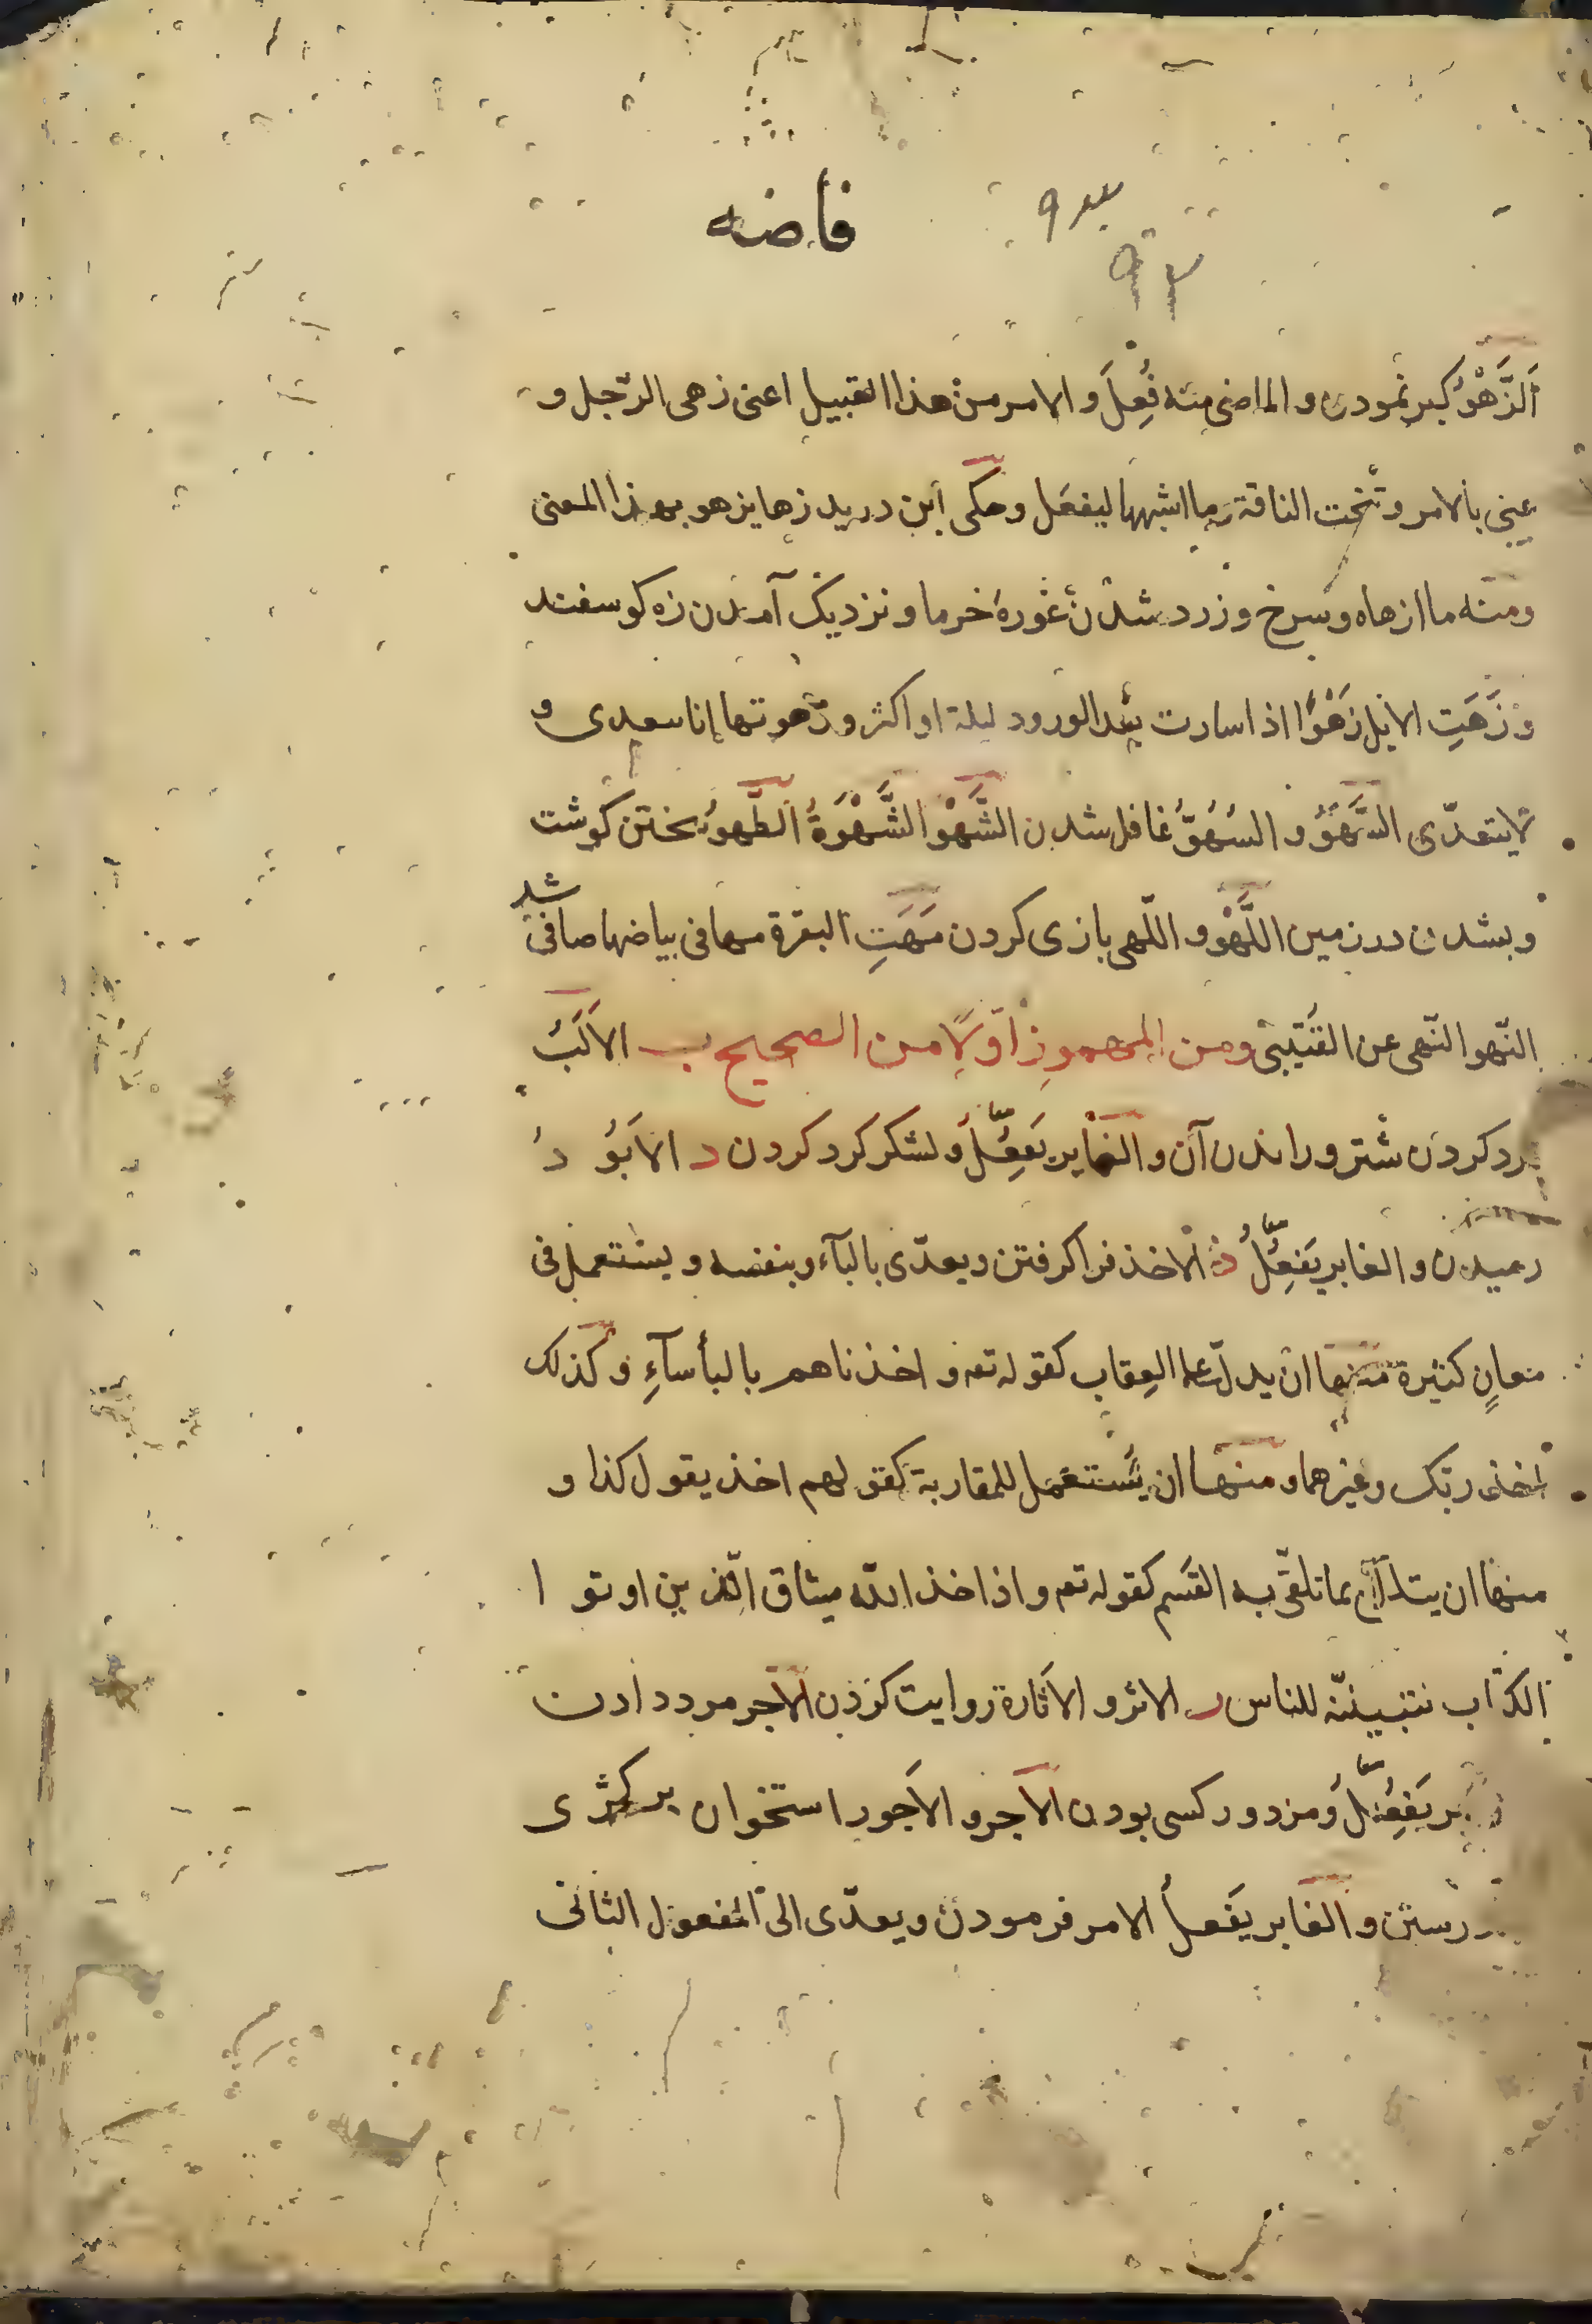 فاضه
اَلزَّهْوُ كبر نمودن و الماضى منه فُعِلَ و الامر من هذا القبيل اعنى زهى الرّجل و
عنى بالامر و نتجت الناقة و ما اشبهها ليفعَل و حكى ابن دريد زها يزهو بهذا المعنى
و منه ما ازهاه و سرخ و زرد شدن غورهٔ خرما و نزديك آمدن زه كوسفند
و زَهَتِ الابل زَهْوًا اذا سارت بعد الورود ليلة او اكثر و زهوتها انا يعدى و
لا يتعدّى السَّهْوُ و السُهُوُّ غافل شدن الشَّهْوُ الشَّهْوَةُ الطَّهوُ پختن كوشت
و بشدن در زمين اللَّهْوُ و اللّهى بازى كردن مَهَتِ البقرة مها فى بياضها صافى شد
النّهو النّهى عن القُتَيْبى و من المهموز اوّلًا من الصحيح ب الاَلَبُ
كرد كردن شتر و راندن آن و الغابر يَفعُِلُ و لشكر كرد كردن د الاَبُوُدُ
رميدن و الغابر يَفعُِلُ ذ الاخذ فرا كرفتن و يعدّى بالبآء و بنفسه و يستعمل فى
معانٍ كثيرة منها ان يدلّ على العِقاب كقوله تعه و اخذناهم بالبأسآءِ و كذلك
اخذ ربّك و غيرهما و منها ان يُستعمل للمقاربة كقولهم اخذ يقول كذا و
منها ان يتلقّى بما تلقّى به القَسَم كقوله تعه و اذ اخذ الله ميثاق الّذين اوتوا
الكتاب لتبيننّه للناس ر الاثر و الاَثارة روايت كردن الاجر مزد دادن
بر يَفعُِلُ و مزدور كسى بودن الاجر و الاَجور استخوان بر كژى
رستن و الغابر يَفعلُ الامر فرمودن و يعدّى الى المفعول الثانى